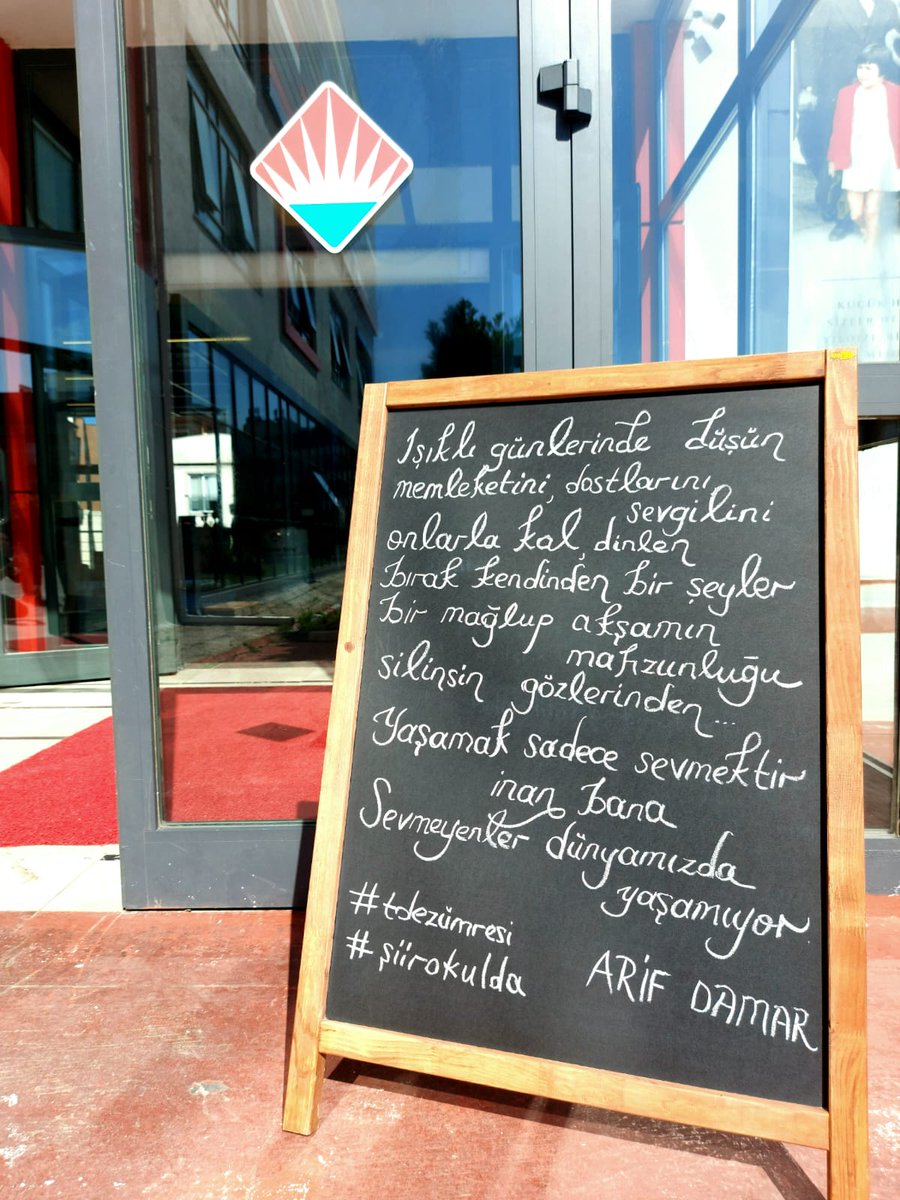 Işıklı günlerinde düşün
memleketini, dostlarını,
sevgilini
onlarla kal, dinlen
bırak kendinden bir şeyler
bir mağlup akşamın
mahzunluğu
silinsin gözlerinden...
Yaşamak sadece sevmektir
inan bana
Sevmeyenler dünyamızda
yaşamıyor.
#tdezümresi
#şiirokulda
ARİF DAMAR
KÜÇÜK H
SİZLER HE